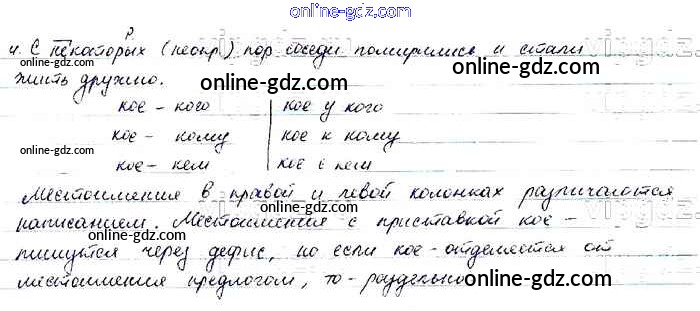 online-gdz.com
Р.
4. С некоторых (неопр.) пор соседи помирились и стали
жить дружно.
online-gdz.com
кое - кого | кое у кого
кое - кому | кое к кому
online-gdz.com
кое - кем | кое с кем
online-gdz.com
Местоимения в правой и левой колонках различаются
написанием. Местоимения с приставкой кое -
online-gdz.com
пишутся через дефис, но если кое - отделяется от
местоимения предлогом, то - раздельно
online-gdz.com